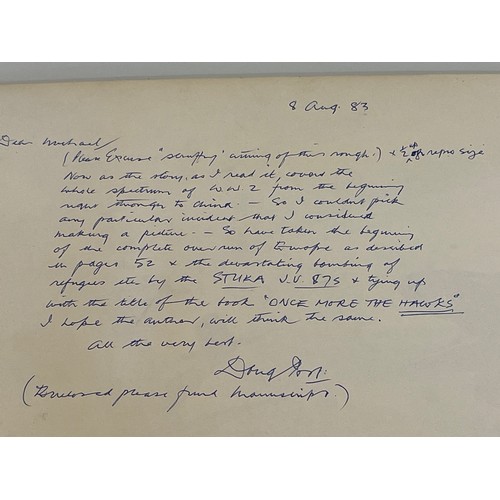 8 Aug. 83
Dear Michael
(Please Excuse "scruffy" writing of this rough.) x ½ up of repro size
Now as the story, as I read it, covers the
whole spectrum of WW2 from the begining
right through to China. – So I couldn't pick
any particular incident that I considered
making a picture. – So have taken the begining
of the complete over run of Europe as described
in pages 52 & the devastating bombing of
refugees etc by the STUKA J.U. 87s & tying up
with the title of the book "ONCE MORE THE HAWKS"
I hope the author, will think the same.
All the very best.
Doug
(Enclosed please find Manuscript.)